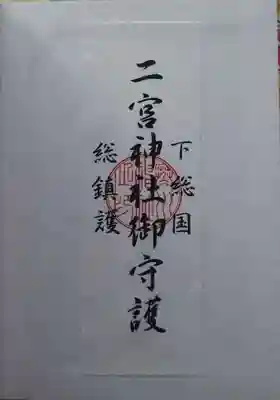 下総国
二宮神社御守護
総鎮護